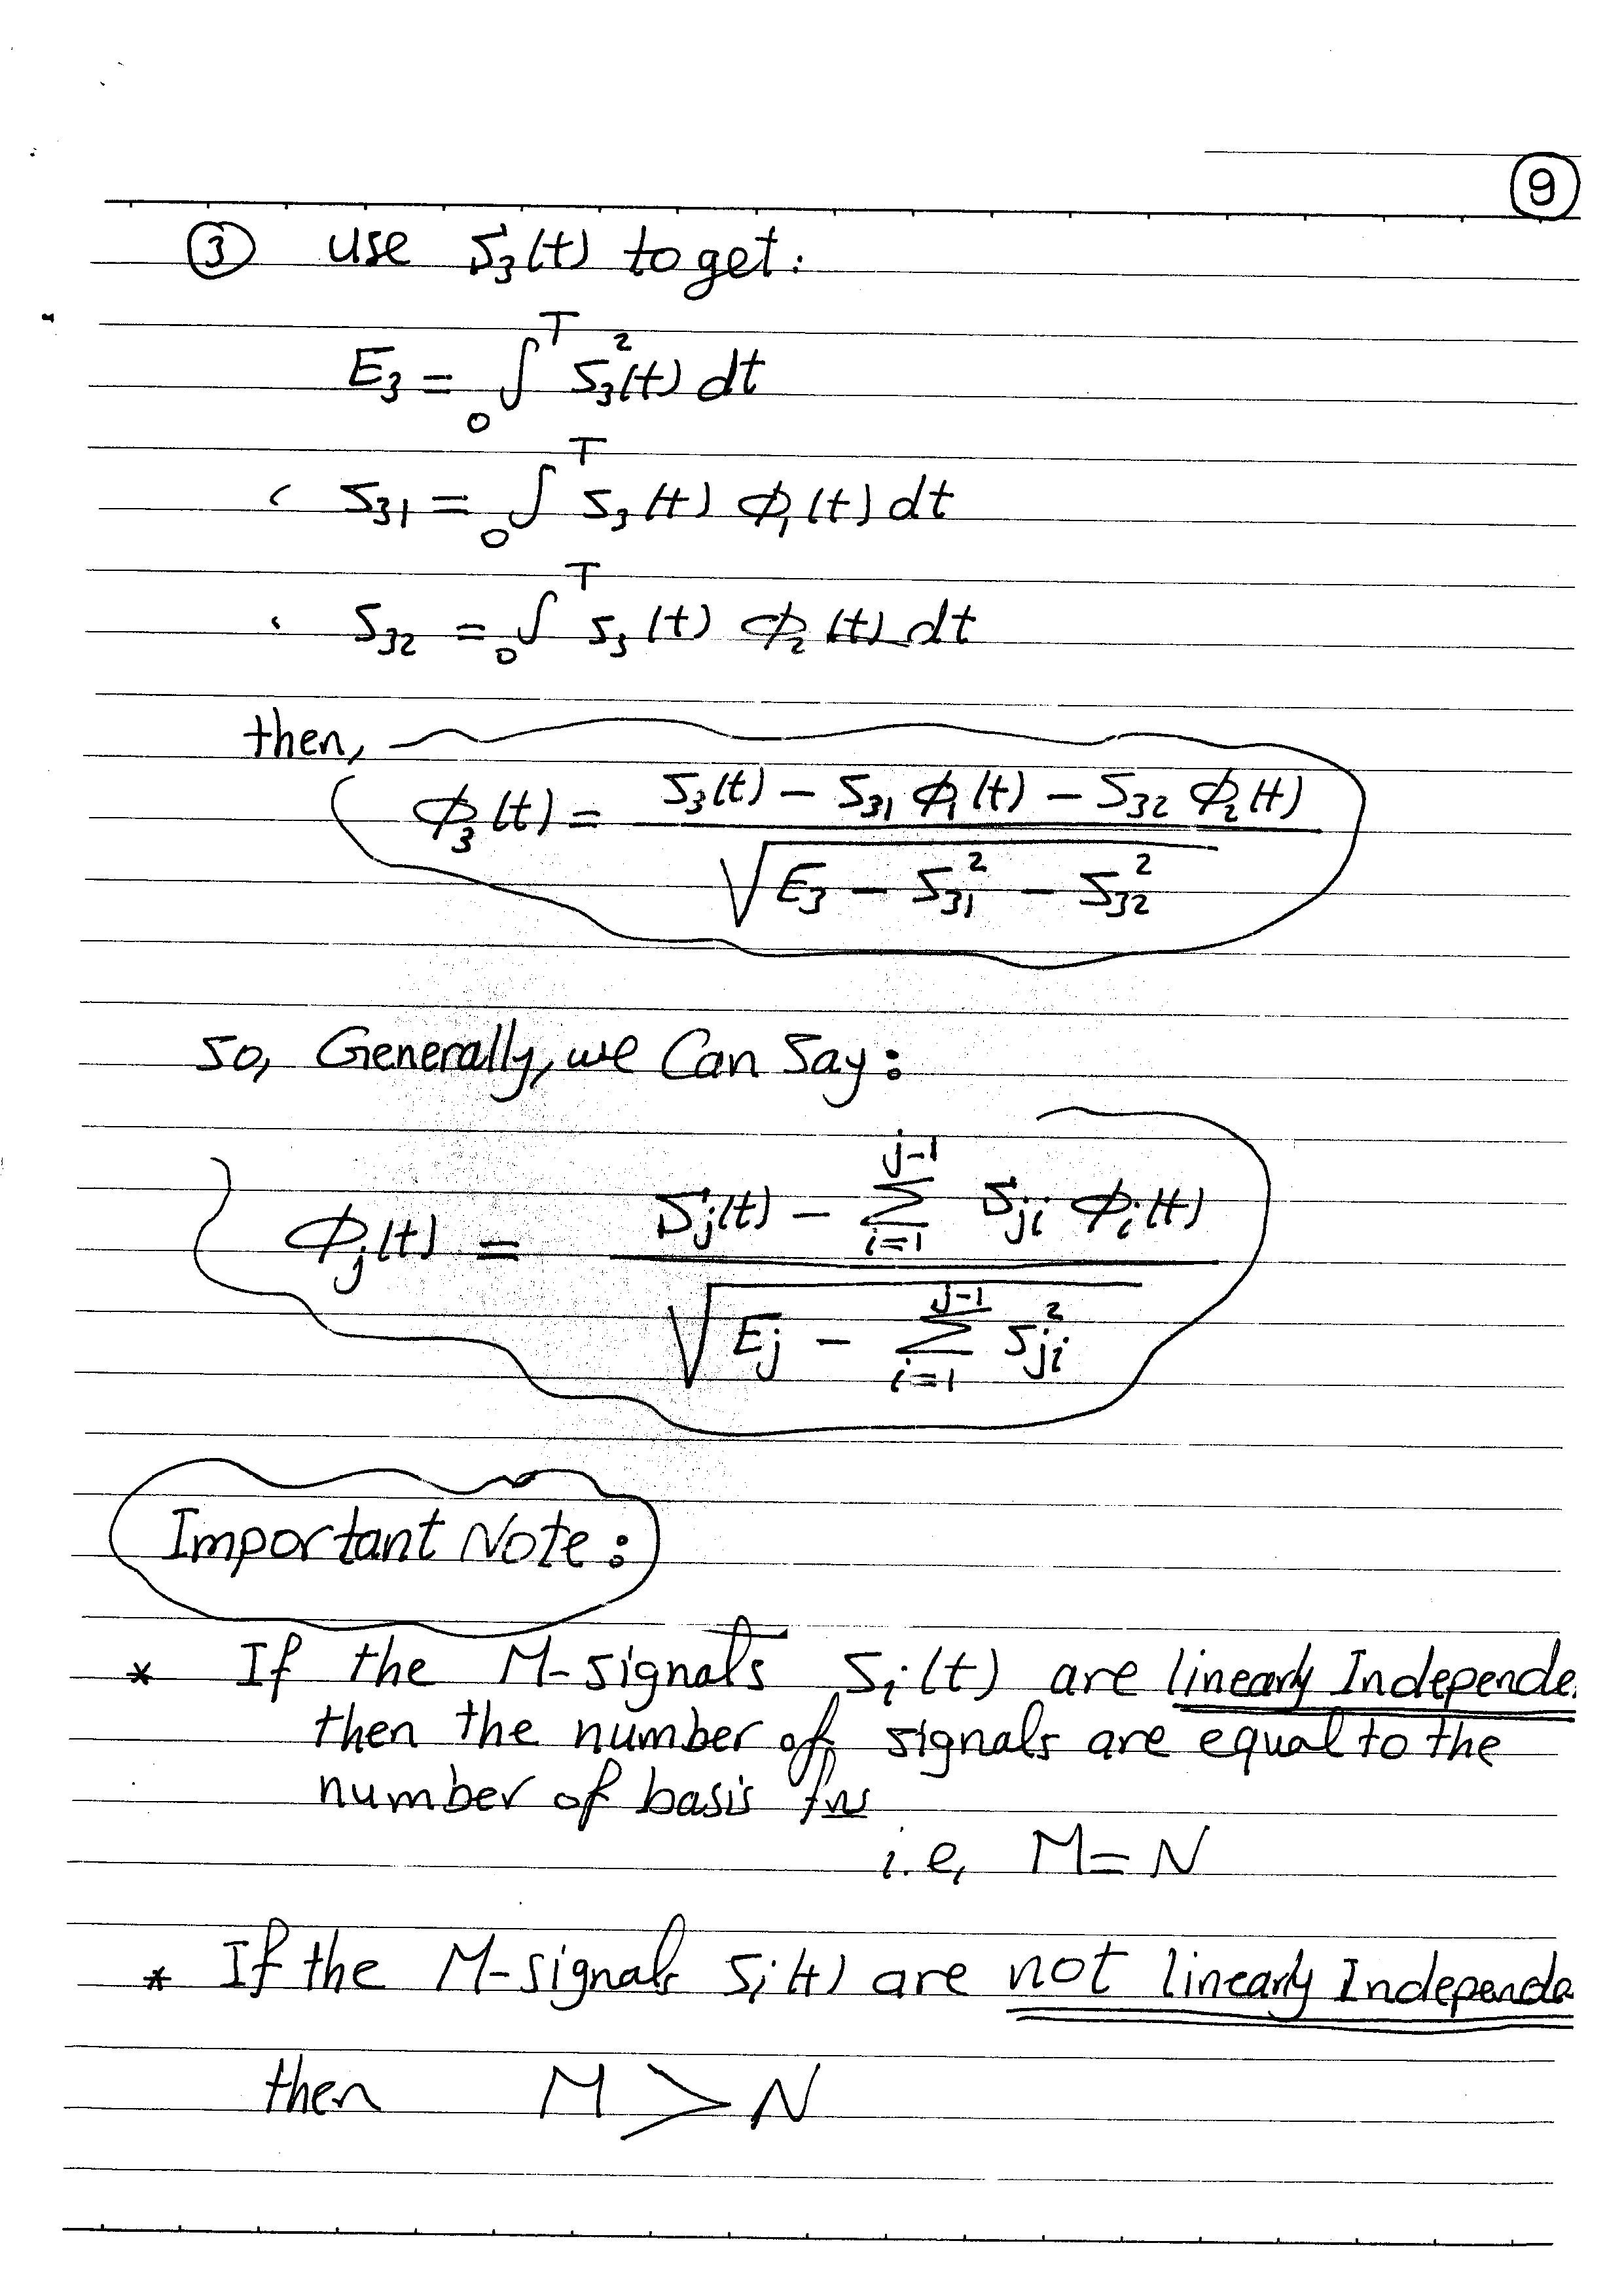 9
3 use S₃(t) to get:
E₃ = ₀∫ᵀ S₃²(t) dt
، S₃₁ = ₀∫ᵀ S₃(t) Φ₁(t) dt
، S₃₂ = ₀∫ᵀ S₃(t) Φ₂(t) dt
then,
Φ₃(t) = (S₃(t) − S₃₁ Φ₁(t) − S₃₂ Φ₂(t)) / √(E₃ − S₃₁² − S₃₂²)
So, Generally, we Can Say:
Φⱼ(t) = (Sⱼ(t) − Σᵢ₌₁ʲ⁻¹ Sⱼᵢ Φᵢ(t)) / √(Eⱼ − Σᵢ₌₁ʲ⁻¹ Sⱼᵢ²)
Important Note:
* If the M-signals Sᵢ(t) are linearly Independe
then the number of signals are equal to the
number of basis fns
i.e, M = N
* If the M-signals Sᵢ(t) are not linearly Independe
then M > N